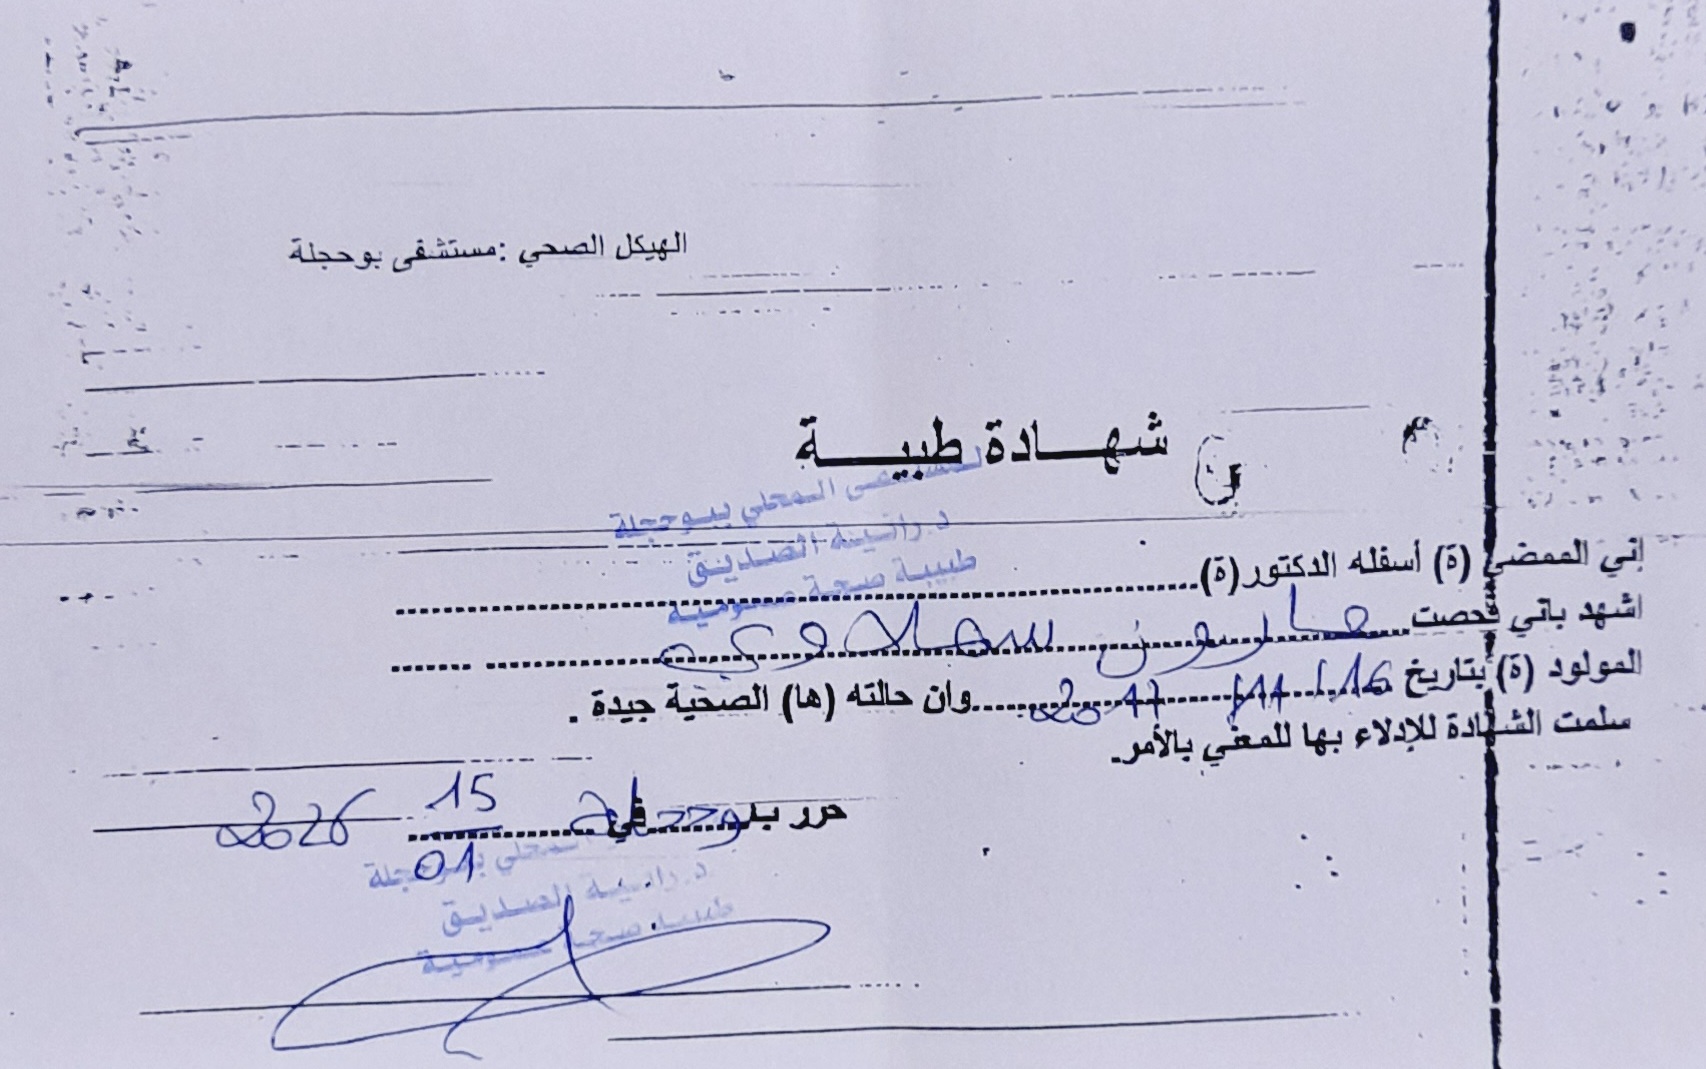 الهيكل الصحي :مستشفى بوحجلة
شهـــادة طبيـــــة
المحلي ببوحجلة
د.رانية الصديق
طبيبة صحة عمومية
إني الممضي (ة) أسفله الدكتور(ة)
اشهد باني فحصت هارون سهلاوي
المولود (ة) بتاريخ 16/ 11/ 2011 وان حالته (ها) الصحية جيدة .
سلمت الشهادة للإدلاء بها للمعني بالأمر.
حرر بـ بوحجلة في 15 01 2026
المحلي ببوحجلة
د.رانية الصديق
طبيبة صحة عمومية